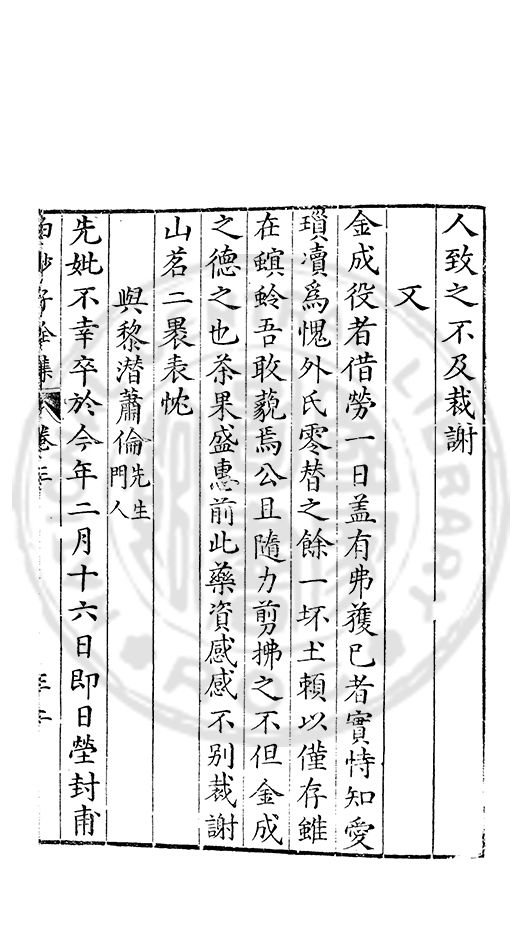 人致之不及裁謝
又
金成役者借勞一日盖有弗獲已者實恃知愛
瑣凟爲愧外氏零替之餘一坏土頼以僅存雖
在螟蛉吾敢藐焉公且隨力剪拂之不但金成
之德之也茶果盛惠前此藥資感感不別裁謝
山茗二褁表忱
與黎潜蕭倫先生門人
先妣不幸卒於今年二月十六日即日塋封甫
白沙子全集 卷三